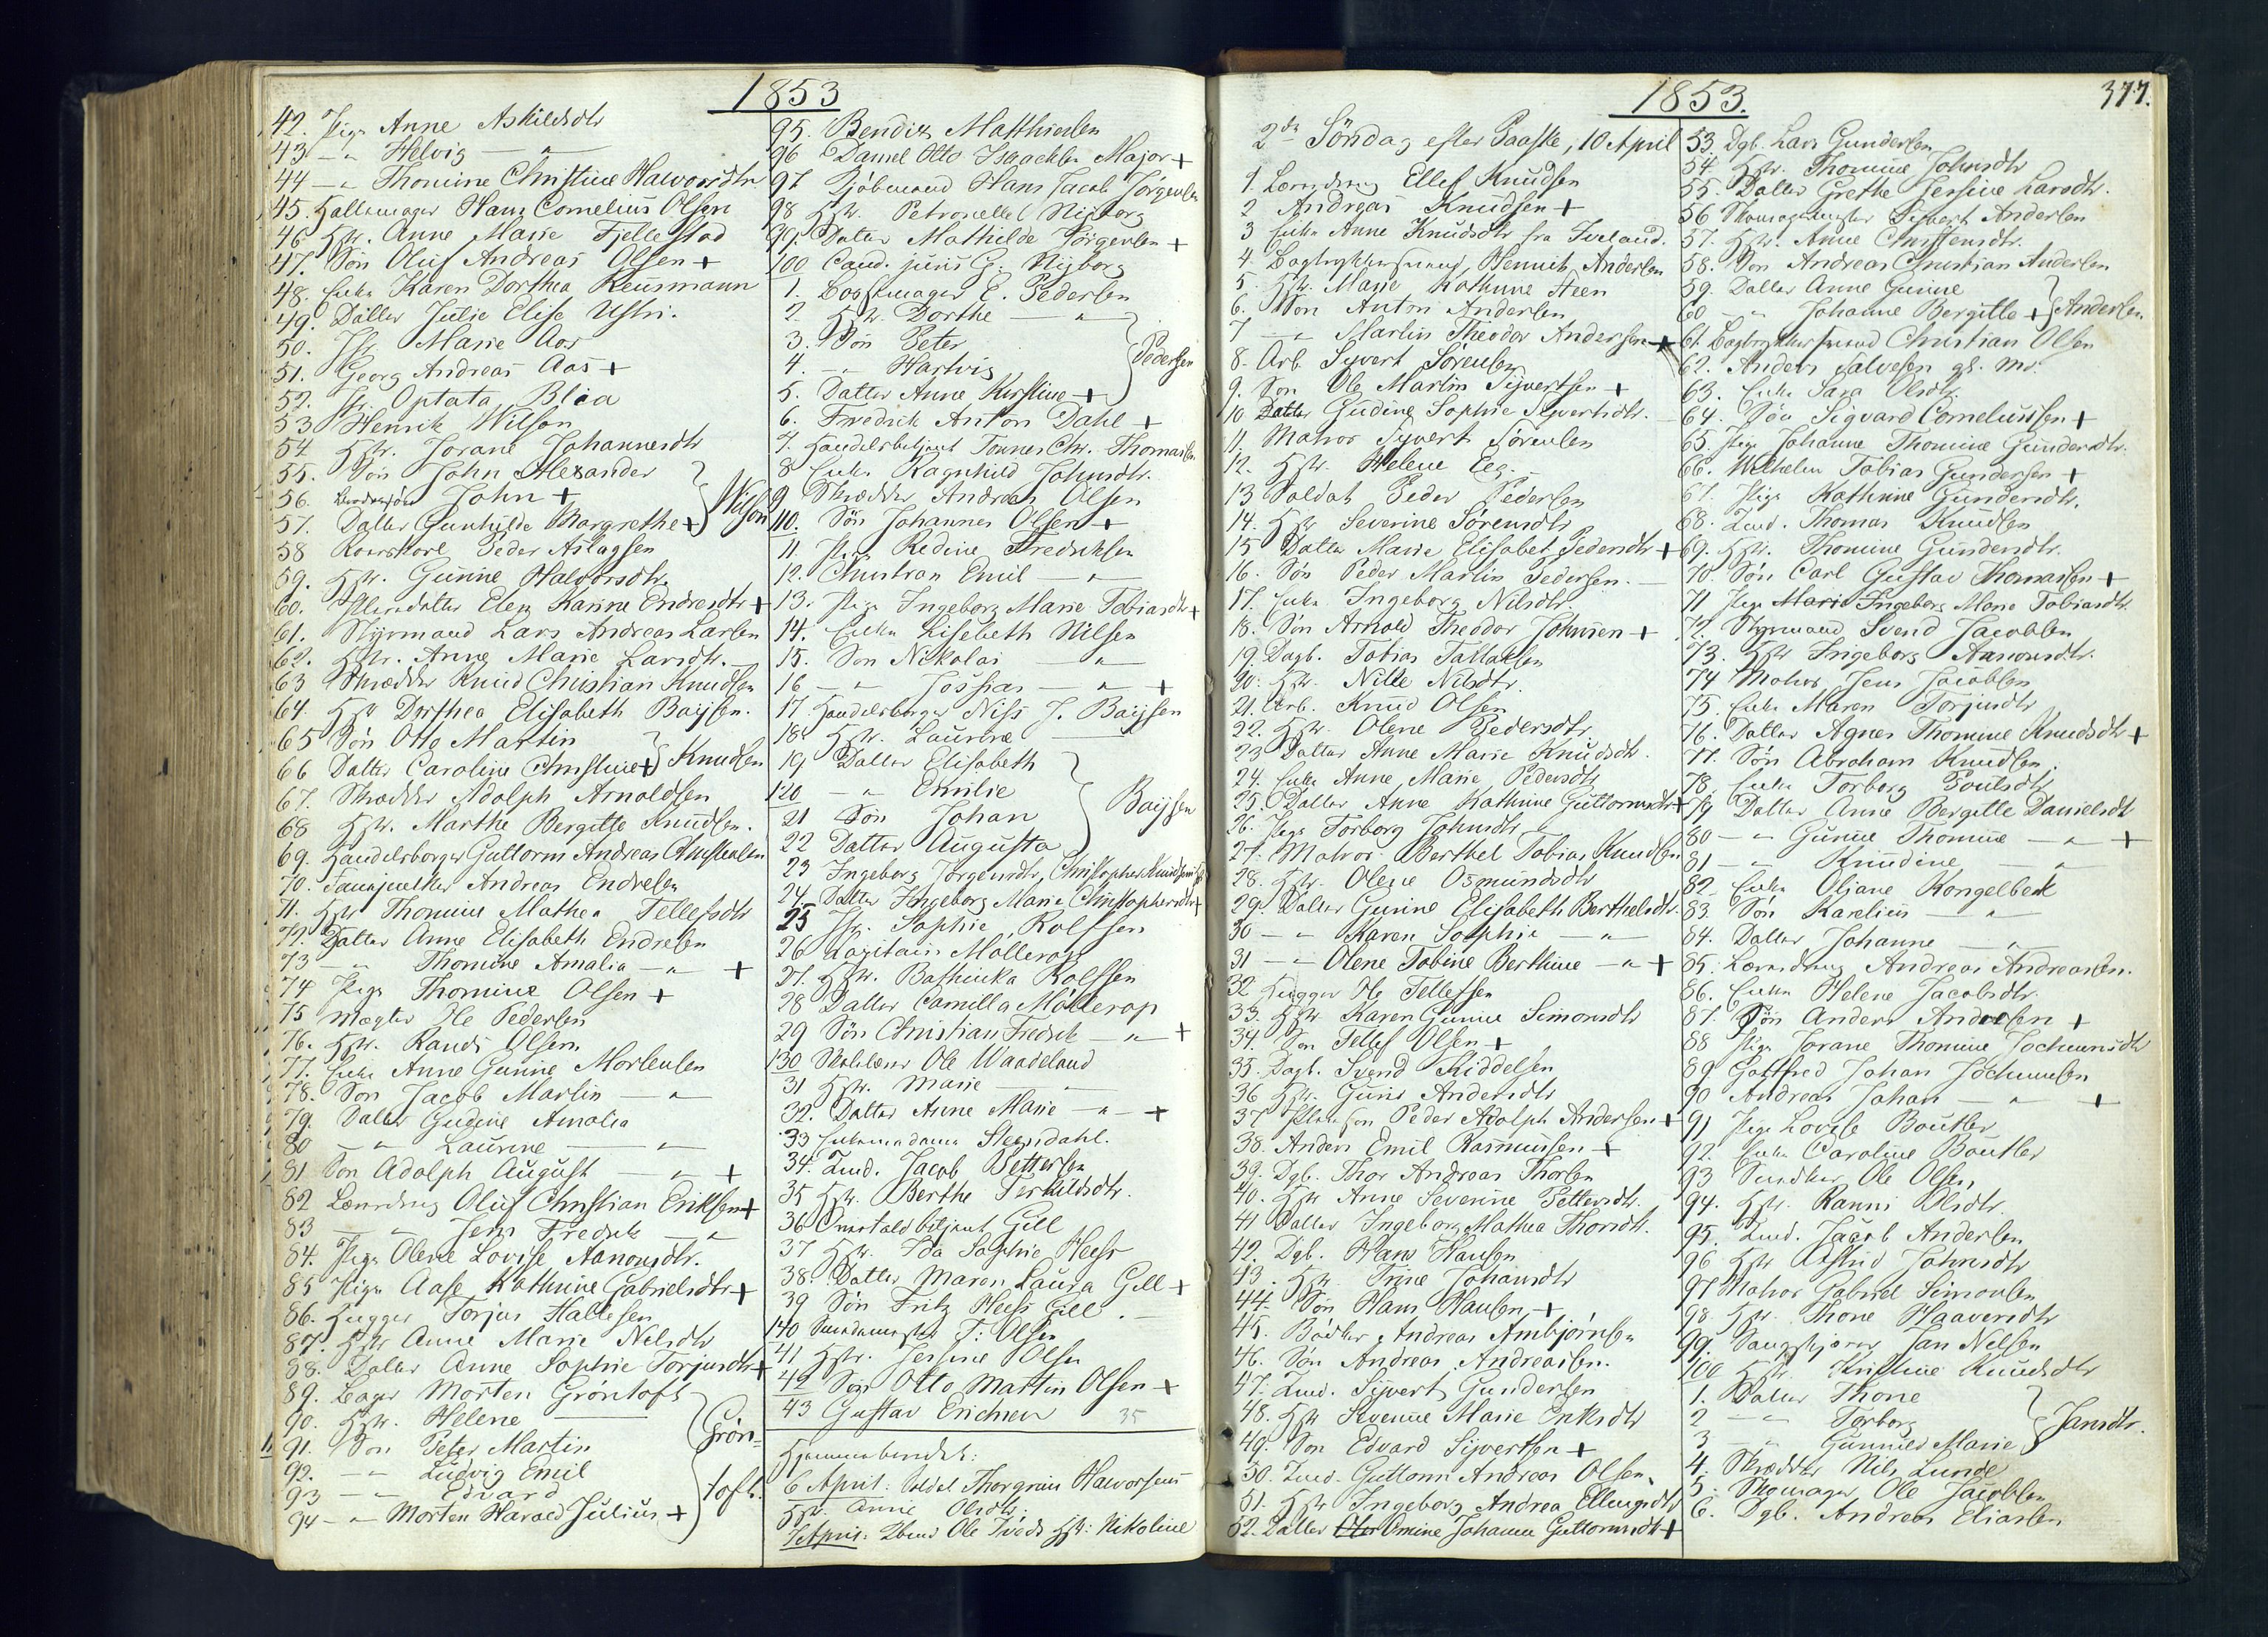 1853
42. Pige Anne Askildsdtr
43 - " Helvig - " -
44 - " Thomine Christine Halvorsdtr
45. Hattemager Hans Cornelius Olsen
46 Hstr. Anne Marie Fjellestad
47. Søn Oluf Andreas Olsen +
48. Enke Karen Dorthea Reusmann
49. Datter Julie Elise Ustri.
50. Jfr. Marie Aas
51. Georg Andreas Aas +
52. Jfr. Optata Blaa
53 Henrik Wilson
54 Hstr. Jorane Johannesdtr
55. Søn John Alexander
56. John +
57. Datter Gunhilde Margrethe + } Wilson
58 Peder Aslagsen
59. Hstr. Gunine Halvorsdtr.
60. Pleiedatter Elen Karine Endresdtr +
61. Styrmand Lars Andreas Larsen
62. Hstr. Anne Marie Larsdtr.
63 Skrædder Knud Christian Knudsen
64. Hstr Dorthea Elisabeth Baysen.
65 Søn Otto Martin
66 Datter Caroline Christine + } Knudsen
67. Skrædder Adolph Arnoldsen
68 Hstr. Marthe Bergitte Knudsen.
69. Handelsborger Guttorm Andreas Christensen
70. Andreas Endresen
71. Hstr Thomine Mathea Tellefsdtr
72. Datter Anne Elisabeth Endresen
73 - " Thomine Amalia - " - +
74 Pige Thomine Olsen +
75 Mægler Ole Pedersen
76. Hstr. Randi Olsen
77. Enke Anne Gunine Mortensen
78. Søn Jacob Martin - " -
79. Datter Gudine Amalia
80 - " Laurine - " -
81 Søn Adolph August - " - +
82 Læredreng Oluf Christian Eriksen +
83 - " Jens Fredrik - " -
84. Pige Olene Lovise Aanonsdtr.
85 Pige Aase Kathrine Gabrielsdtr +
86. Hugger Torjus Hallesen
87. Hstr Anne Marie Nilsdtr
88. Datter Anne Sophie Torjusdtr +
89. Bager Morten Grøntoft
90. Hstr. Helene
91. Søn Peter Martin
92. - " Ludvig Emil
93 - " Edvard
94 - " Morten Harald Julius + } Grøn-toft.
95. Bendix Matthiesen
96 Daniel Otto Isaachsen Major +
97 Kjøbmand Hans Jacob Jørgensen
98 Hstr. Petronelle Nyborg
99. Datter Mathilde Jørgensen +
100 Cand. juris G. Nyborg
1. E. Pedersen
2. Hstr. Dorthe - " -
3. Søn Peter
4. - " Hartvig
5. Datter Anne Kirstine + } Pedersen
6. Fredrik Anton Dahl +
7. Handelsbetjent Tønnes Chr. Thomassen
8 Enke Ragnhild Johnsdtr.
9 Skrædder Andreas Olsen
110. Søn Johannes Olsen +
11. Pige Redine Fredriksen
12. Christian Emil - " -
13. Pige Ingeborg Marie Tobiasdtr +
14. Enke Lisebeth Nilsen
15. Søn Nikolai - " -
16 - " Jossias - " - +
17 Handelsborger Niss J. Baysen
18 Hstr. Laurine
19 Datter Elisabeth
120 - " Emilie
21 Søn Johan
22 Datter Augusta } Baysen
23 Ingeborg Jørgensdtr, Christopher Knudsens
24. Datter Ingeborg Marie Christophersdtr +
25 Jfr. Sophie Rolfsen
26 Kapitain Møllerop
27. Hstr. Bathinka Rolfsen
28 Datter Camilla Møllerop
29 Søn Christian Fredrik - " - +
130 Ole Waadeland
31 Hstr. Marie
32. Datter Anne Marie - " - +
33 Enkemadame Steensdahl.
34. Tmd. Jacob Pettersen
35 Hstr. Berthe Terkildsdtr.
36 Gill
37 Hstr. Ida Sophie Heess
38. Datter Maren Laura Gill +
39 Søn Fritz Heess Gill.
140 T: Olsen
41 Hstr. Jessine Olsen
42 Søn Otto Martin Olsen +
43 Gustav Erichsen 35
Hjemmeberettet:
6 April: Thorgrim Halvorsens
Hstr. Anne Olsdtr;
7 April: Ole Tveds Hstr: Nikoline
1853.
377.
2den Søndag efter Paaske, 10 April
1. Læredreng Ellef Knudsen
2 Andreas Knudsen +
3 Enke Anne Knudsdtr fra Iveland.
4. Bogtrykkersvend, Henrik Andersen
5. Hstr. Marie Kathrine Steen
6. Søn Anton Andersen
7 - " Martin Theodor Anderssen +
8. Arb. Syvert Sørensen
9. Søn Ole Martin Syvertsen +
10. Datter Gudine Sophie Syvertsdtr.
11. Matros Syvert Sørensen
12. Hstr. Helene Eeg.
13 Soldat Peder Pedersen
14. Hstr Severine Sørensdtr
15 Datter Marie Elisabet Pedersdtr +
16. Søn Peder Martin Pedersen.
17. Enke Ingeborg Nilsdtr.
18. Søn Arnold Theodor Johnsen +
19. Dagb. Tobias Tallaksen
20. Hstr. Nille Nilsdtr.
21. Arb. Knud Olsen
22. Hstr. Olene Pedersdtr.
23 Datter Anne Marie Knudsdtr.
24. Enke Anne Marie Pedersdtr
25. Datter Anne Kathrine Guttormsdtr +
26. Pige Torborg Johnsdtr
27. Matros Berthel Tobias Knudsen
28. Hstr. Olene Osmundsdtr
29. Datter Gunine Elisabeth Berthelsdtr.
30 - " Karen Sophie - " -
31 - " Olene Tobine Berthine - " +
32 Hugger Ole Tellefsen
33. Hstr Karen Gunine Simonsdtr
34. Søn Tellef Olsen +
35. Dagb. Svend Kiddelsen
36 Hstr. Guri Andersdtr
37 Pleiesøn Peder Adolph Andersen +
38. Anders Emil Rasmussen +
39. Dgb. Thor Andreas Thorsen
40. Hstr Anne Severine Pettersdtr.
41 Datter Ingeborg Mathea Thorsdtr.
42. Dgb. Hans Hansen
43. Hstr Trine Johansdtr
44. Søn Hans Hansen +
45. Bødker Andreas Ambjørnsen
46. Søn Andreas Andreassen.
47. Tmd. Syvert Gundersen
48. Hstr Severine Marie Eriksdtr
49. Søn Edvard Syvertsen +
50. Tmd. Guttorm Andreas Olsen
51. Hstr Ingeborg Andrea Ellingsdtr
52. Datter Omine Johanne Guttormsdtr +
53. Dgb. Lars Gundersen
54. Hstr. Thomine Johnsdtr
55. Datter Grethe Jessine Larsdtr.
56 Skomagermester Sivert Andersen
57. Hstr. Anne Christensdtr.
58. Søn Andreas Christian Andersen
59. Datter Anne Gunine
60 - " Johanne Bergitte + } Andersen
61. Bogtrykkersvend Christian Olsen
62. Anders Salvesen gl. Md.
63. Enke Sara Olsdtr.
64. Søn Sigvard Corneliussen +
65. Pige Johanne Thomine Gundersdtr.
66. Wilhelm Tobias Gundersen +
67. Pige Kathrine Gundersdtr.
68. Tmd. Thomas Knudsen
69. Hstr. Thomine Gundersdtr.
70. Søn Carl Gustav Thomassen +
71 Pige Ingeborg Marie Tobiasdtr.
72. Styrmand Svend Jacobsen
73. Hstr Ingeborg Aanonsdtr.
74 Matros Jens Jacobsen
75. Enke Maren Torjusdtr
76. Datter Agnes Thomine Knudsdtr +
77. Søn Abraham Knudsen.
78. Enke Torborg Poulsdtr
79 Datter Anne Bergitte Danielsdtr
80 - " Gunine Thomine - " - +
81 - " Knudine - " -
82 Enke Oljane Kongelbeck
83. Søn Karelius - " -
84. Datter Johanne - " -
85. Læredreng Andreas Andreassen.
86. Enke Helene Jacobsdtr.
87. Søn Anders Andresen +
88 Pige Jorane Thomine Jochumsdtr
89 Gotfred Johan Jochumsen
90 Andreas Johan - " - +
91 Pige Lovise Boutler
92. Enke Caroline Boutler
93 Snedker Ole Olsen
94. Hstr. Ranni Olsdtr.
95. Tmd. Jacob Andersen
96 Hstr Astrid Johnsdtr
97 Matros Gabriel Simonsen
98 Hstr Thone Haaversdtr
99. Jan Nilsen
100 Hstr. Kristine Knudsdtr
1. Datter Thone
2 - " Torborg
3 - " Gunnild Marie } Jansdtr.
4. Skrædder Nils Lunde
5. Skomager Ole Jacobsen
6. Dgb. Andreas Eliassen